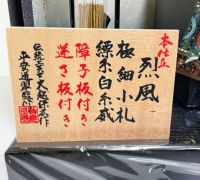 本仕立
烈風
極細小札
縹糸白糸威
障子板付き
逆さ板付き
伝統工芸士 大越保広作
平安道翠監修